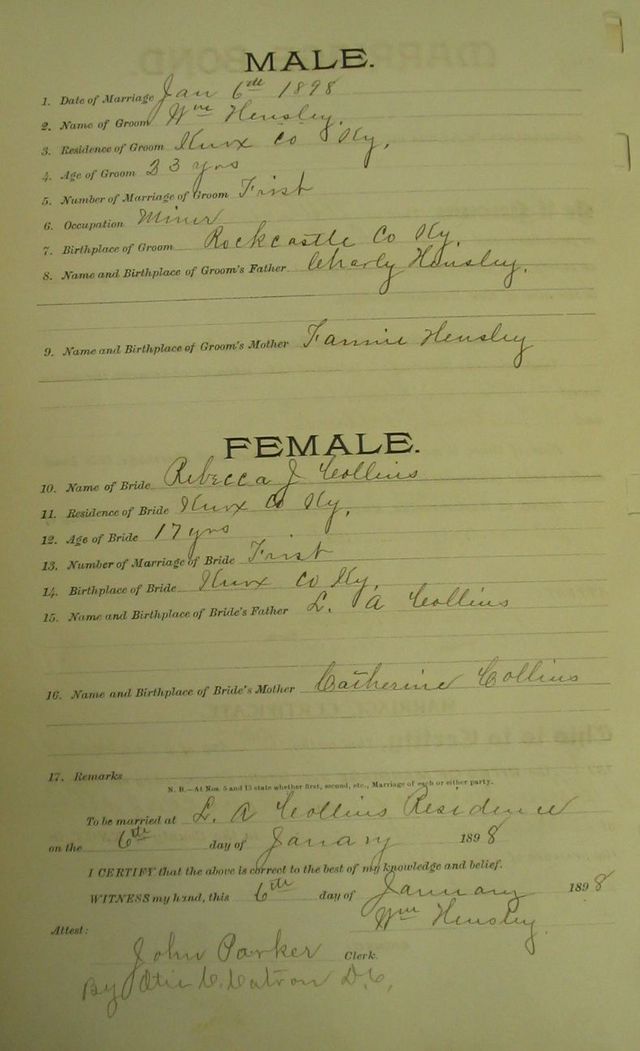 MALE.
1. Date of Marriage Jan 6th 1898
2. Name of Groom Wm Hensley.
3. Residence of Groom Knox Co Ky,
4. Age of Groom 23 yrs
5. Number of Marriage of Groom Frist
6. Occupation Miner
7. Birthplace of Groom Rockcastle Co Ky.
8. Name and Birthplace of Groom's Father Charly Hensley.
9. Name and Birthplace of Groom's Mother Fannie Hensley
FEMALE.
10. Name of Bride Rebecca J Collins
11. Residence of Bride Knox Co Ky,
12. Age of Bride 17 yrs
13. Number of Marriage of Bride Frist
14. Birthplace of Bride Knox Co Ky,
15. Name and Birthplace of Bride's Father L. A Collins
16. Name and Birthplace of Bride's Mother Catherine Collins
17. Remarks
N. B.—At Nos. 5 and 13 state whether first, second, etc., Marriage of each or either party.
To be married at L. A Collins Residence
on the 6th day of Janary 1898
I CERTIFY that the above is correct to the best of my knowledge and belief.
WITNESS my hand, this 6th day of January 1898
Wm Hensley.
Attest:
John Parker Clerk.
By Otis C. Catron D.C,